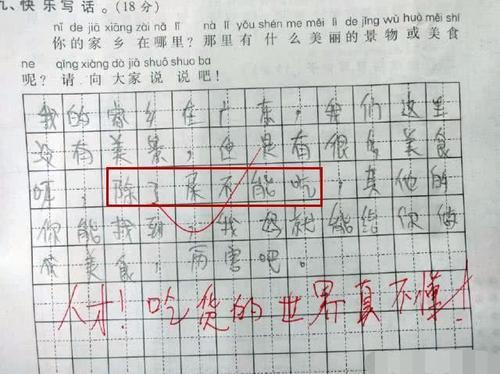 、快乐写话。(18分)
nǐ de jiā xiāng zài nǎ lǐ nà lǐ yǒu shén me měi lì de jǐng wù huò měi shí
你的家乡在哪里？那里有什么美丽的景物或美食
ne qǐng xiàng dà jiā shuō shuo ba
呢？请向大家说说吧！
我的家乡在广东，我们这里
没有美景，但是有很多美食
呀，除了不能吃，其他的
你能找到，我妈就能给你做
成美食，厉害吧。
人才！吃货的世界真不懂！